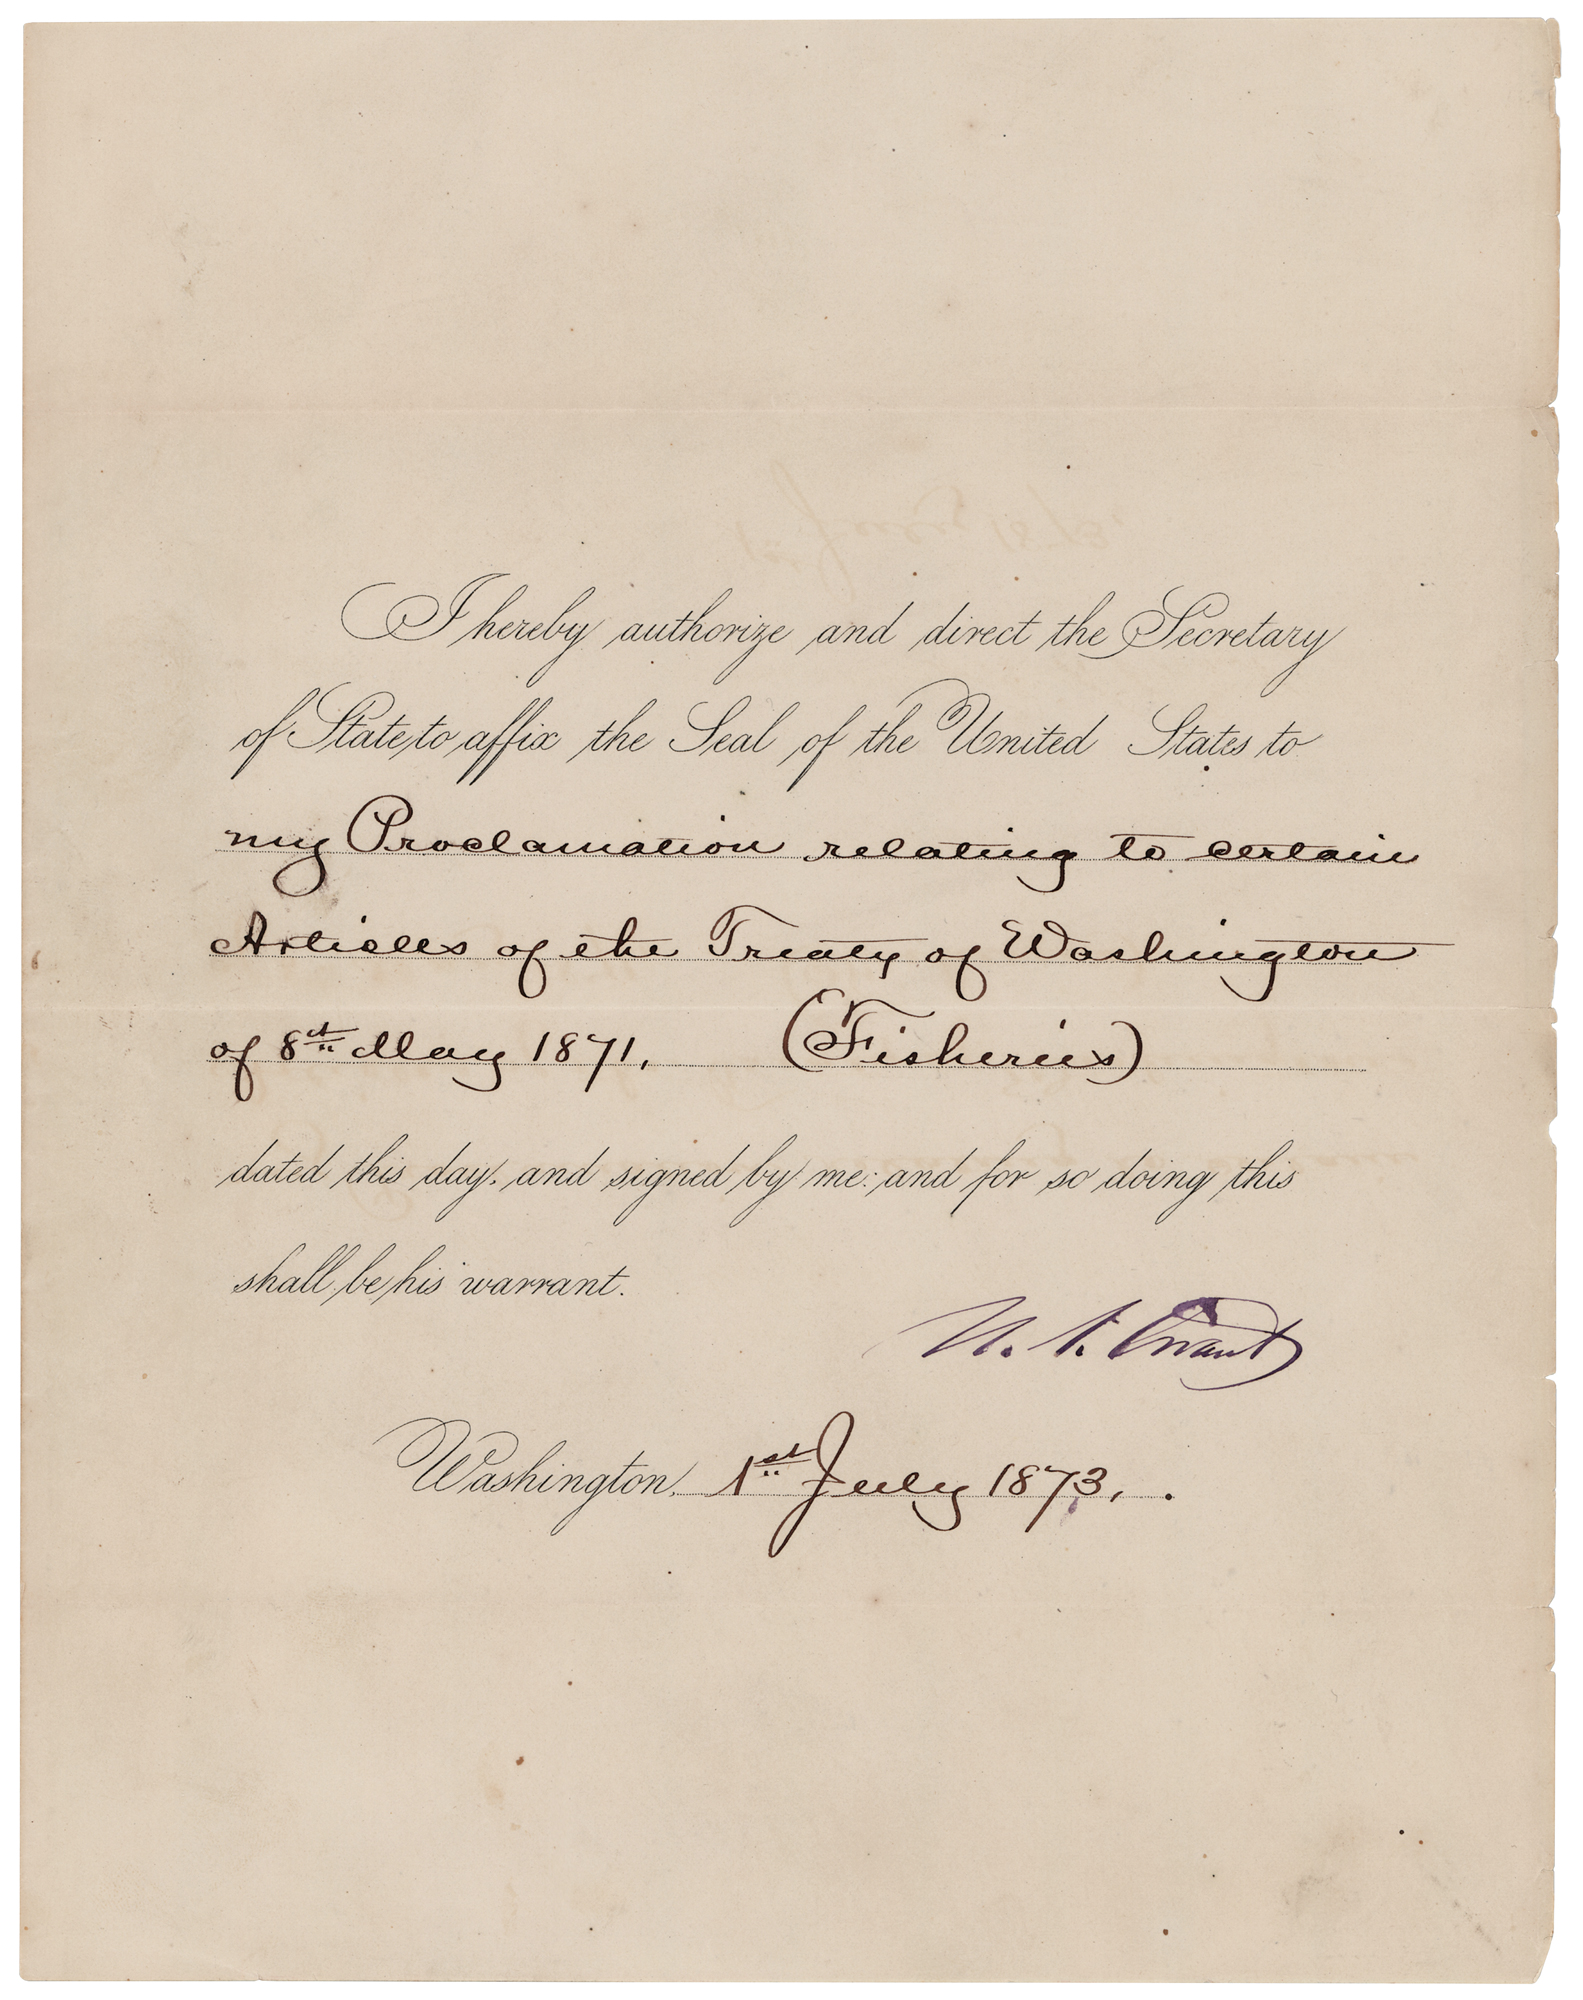 I hereby authorize and direct the Secretary
of State to affix the Seal of the United States to
my Proclamation relating to certain
Articles of the Treaty of Washington
of 8th May 1871. (Fisheries)
dated this day, and signed by me: and for so doing this
shall be his warrant.
U. S. Grant
Washington, 1st July 1873.